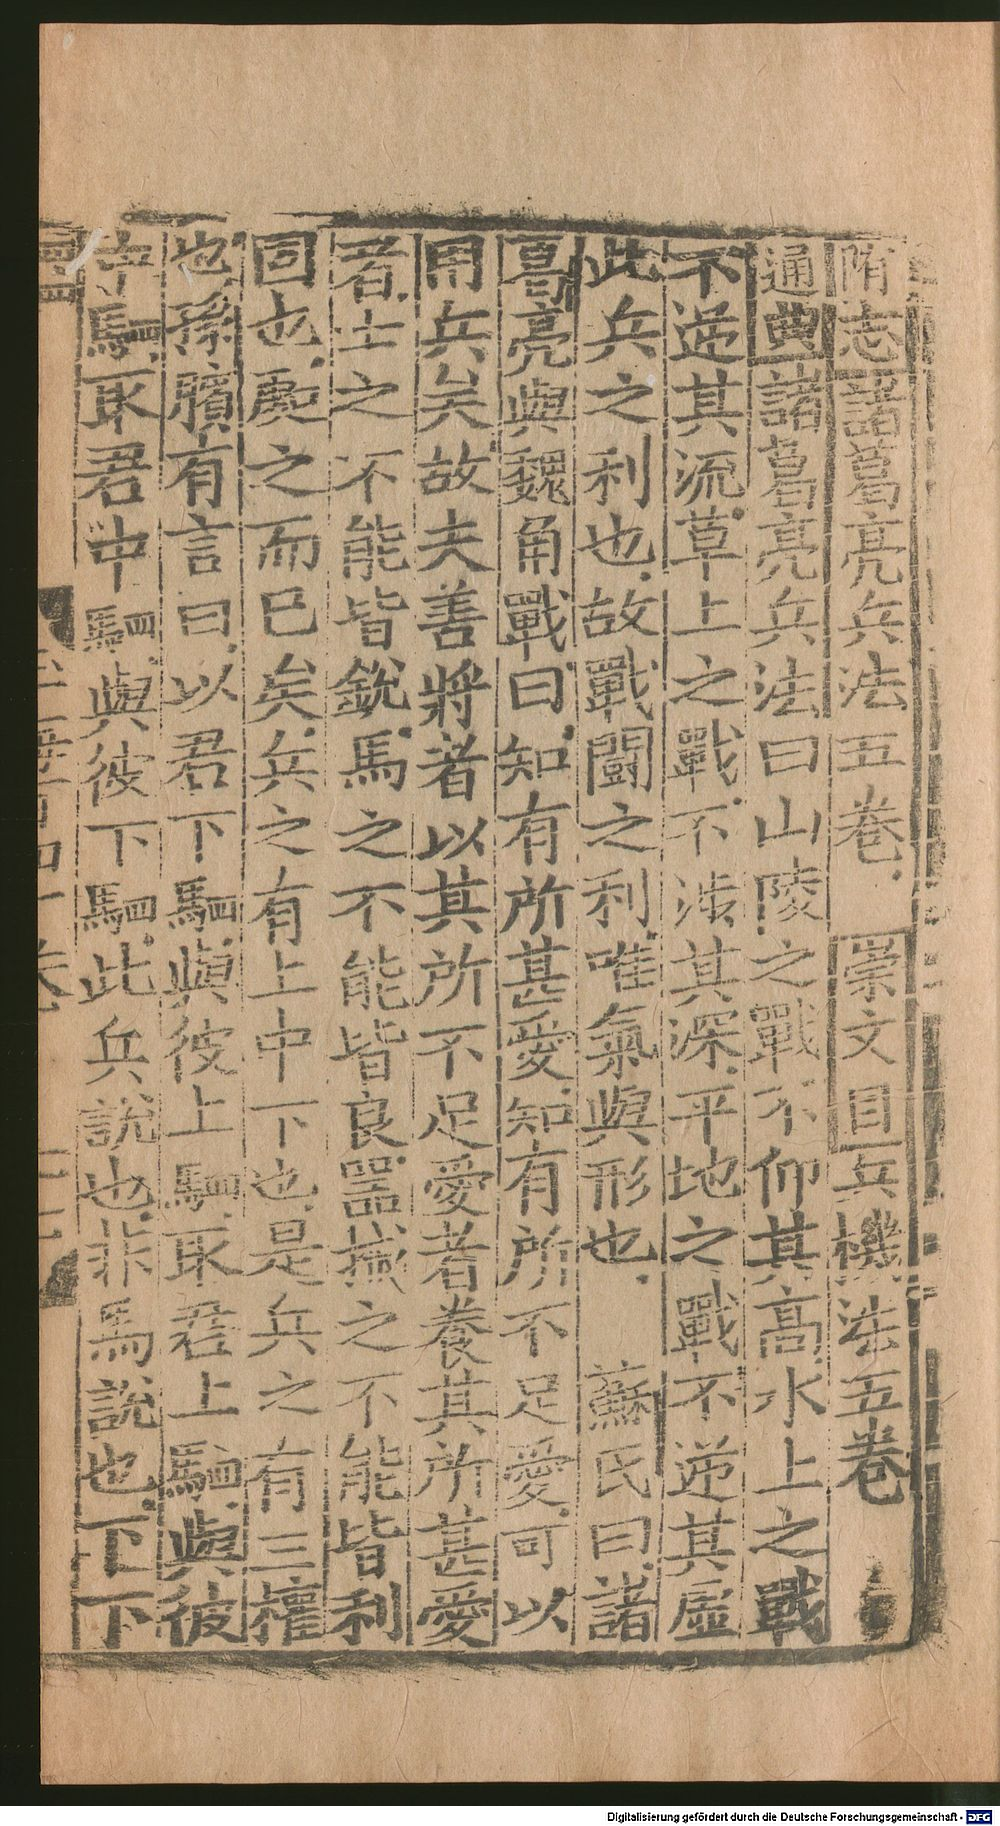 隋志諸葛亮兵法五卷 崇文目兵機法五卷
通典諸葛亮兵法曰山陵之戰不仰其高水上之戰
不逆其流草上之戰不涉其深平地之戰不逆其虛
此兵之利也故戰鬪之利唯氣與形也 蘇氏曰諸
葛亮與魏角戰曰知有所甚愛知有所不足愛可以
用兵矣故夫善將者以其所不足愛者養其所甚愛
者士之不能皆銳馬之不能皆良器械之不能皆利
固也處之而已矣兵之有上中下也是兵之有三權
也孫臏有言曰以君下駟與彼上駟取君上駟與彼
中駟取君中駟與彼下駟此兵說也非馬說也下下
Digitalisierung gefördert durch die Deutsche Forschungsgemeinschaft - DFG